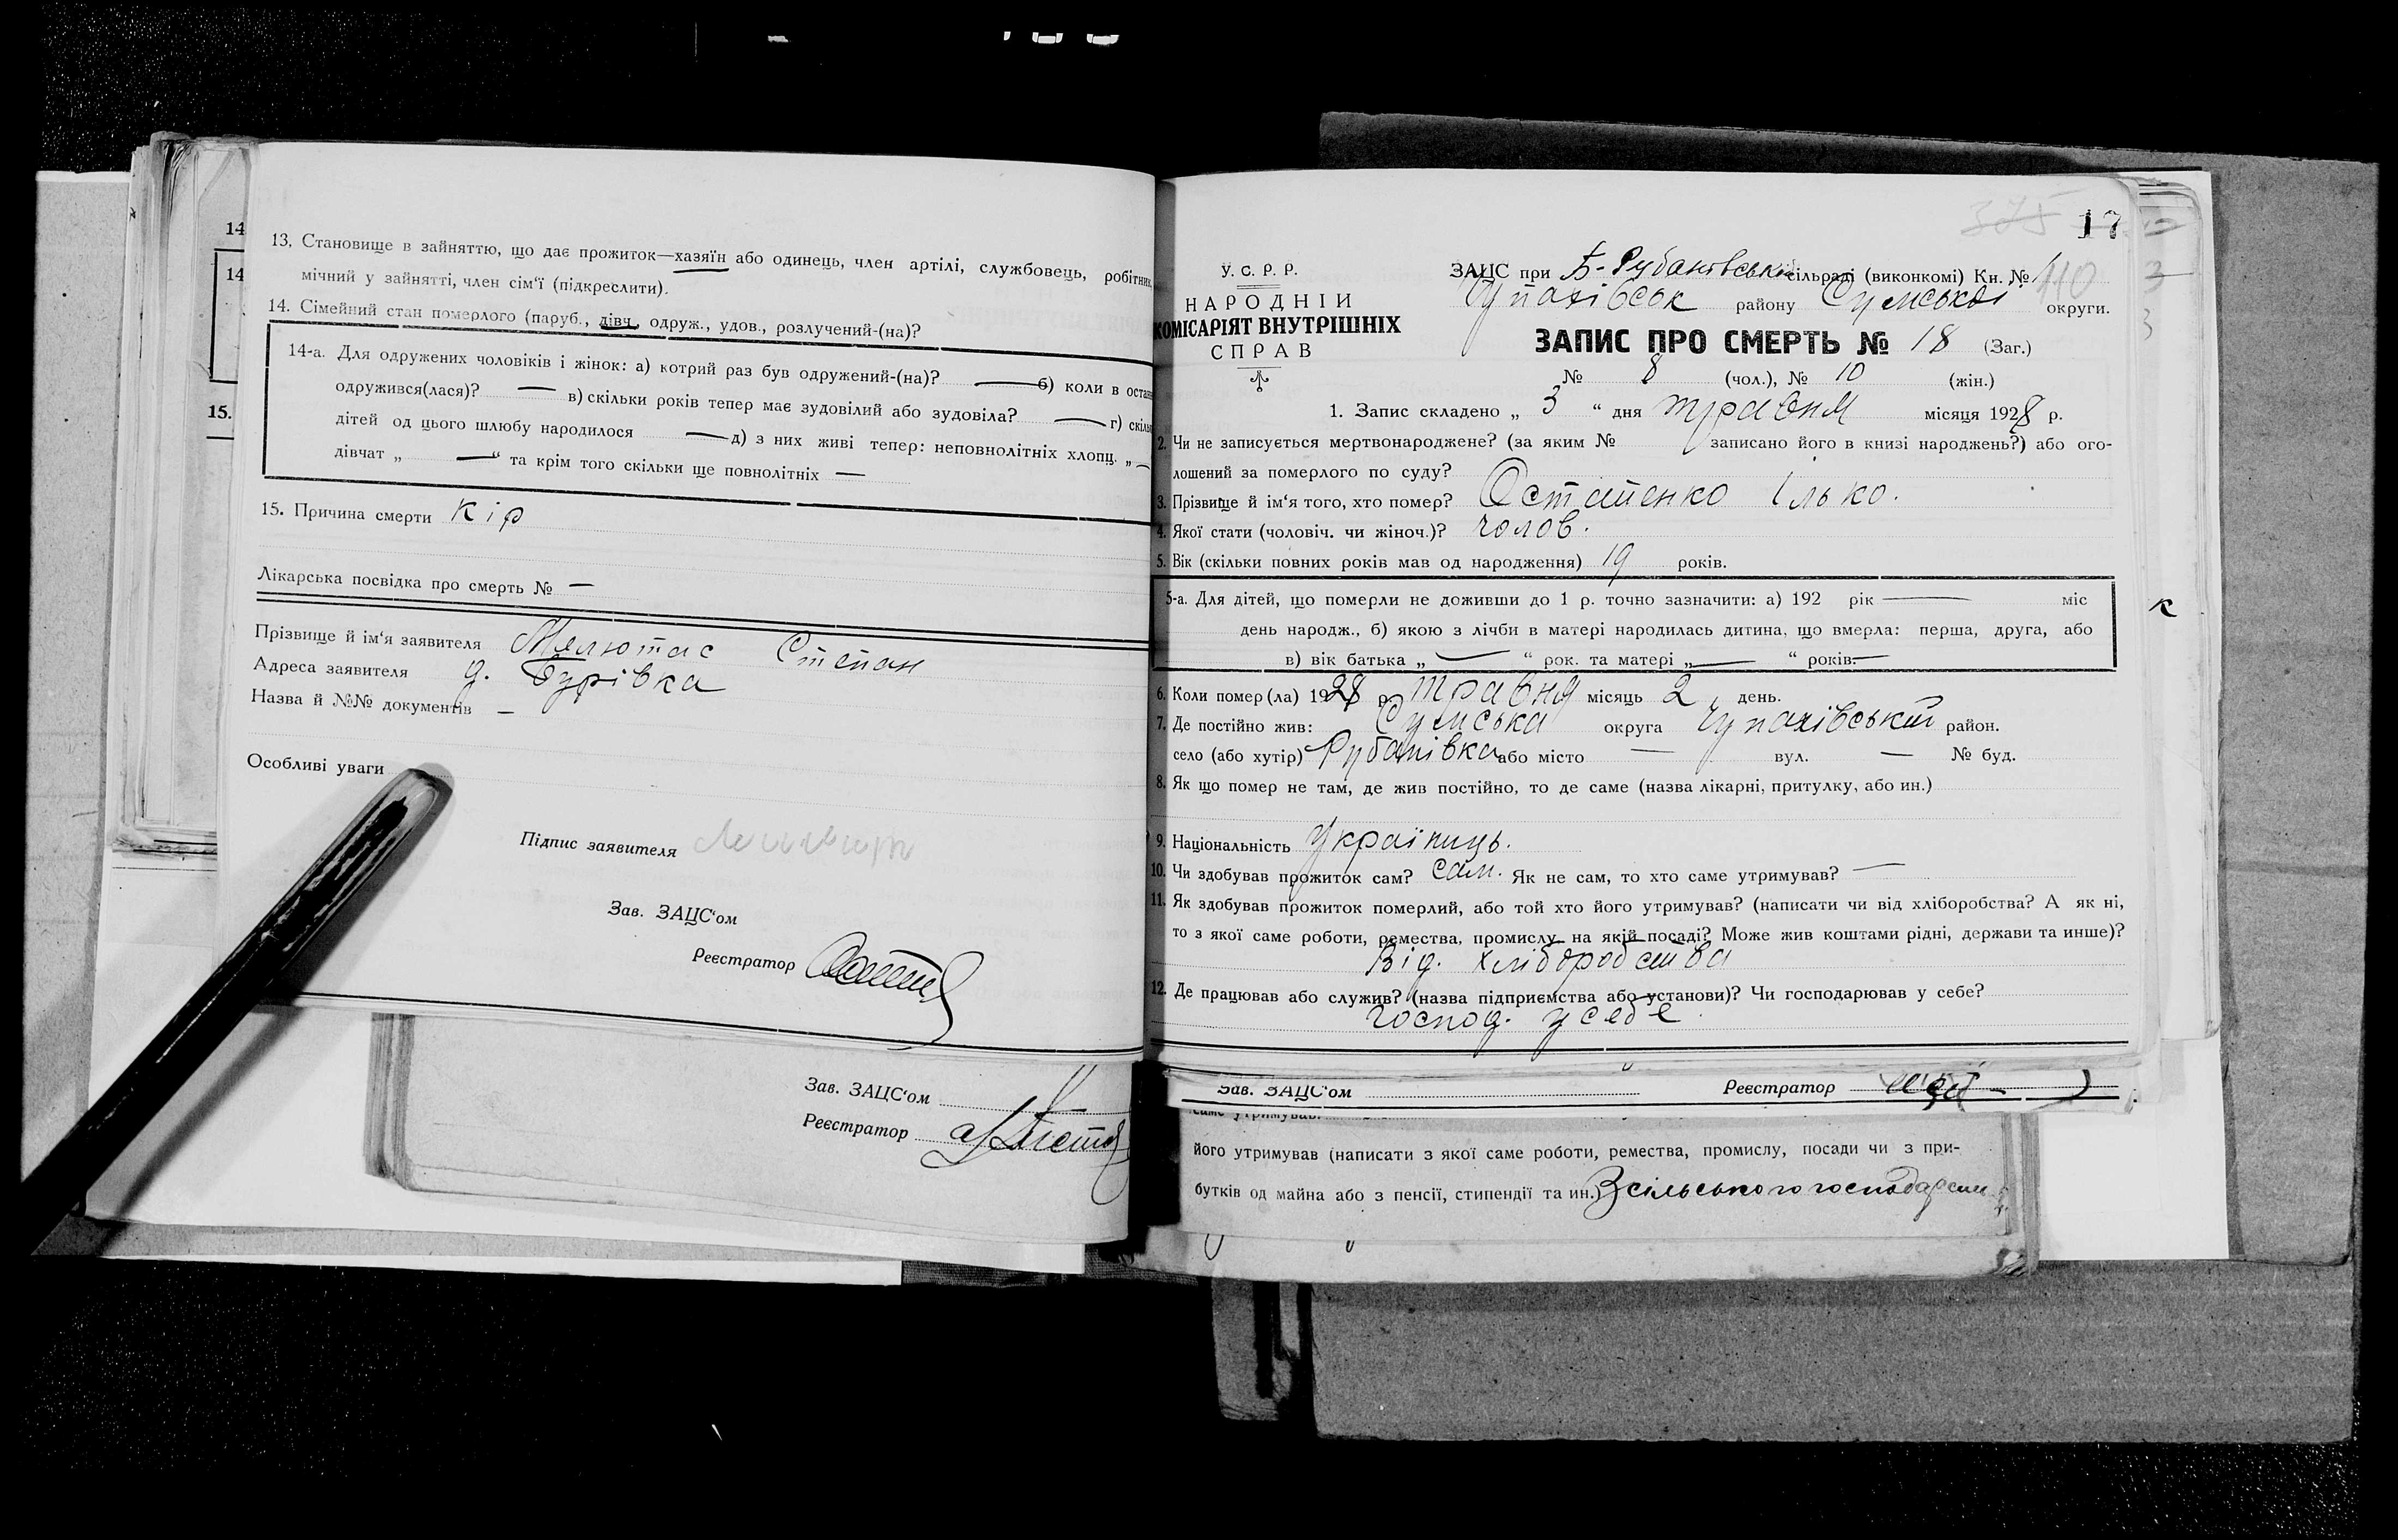 14
14
15.
13. Становище в зайняттю, що дає прожиток—хазяїн або одинець, член артілі, службовець, робітник,
мічний у зайнятті, член сім‘ї (підкреслити).
14. Сімейний стан померлого (паруб., дівч., одруж., удов., розлучений-(на)?
14-а. Для одружених чоловіків і жінок: а) котрий раз був одружений-(на)? — б) коли в остан
одружився(лася)? — в) скільки років тепер має зудовілий або зудовіла? — г) скіль
дітей од цього шлюбу народилося — д) з них живі тепер: неповнолітніх хлопц. „ —
дівчат „ — “ та крім того скільки ще повнолітніх —
15. Причина смерти Кір
Лікарська посвідка про смерть № —
Прізвище й ім‘я заявителя Степан
Адреса заявителя д. Бурівка
Назва й №№ документів —
Особливі уваги
Підпис заявителя
Зав. ЗАЦС‘ом
Реєстратор
Зав. ЗАЦС‘ом
Реєстратор
375 17
У. С. Р. Р.
НАРОДНІЙ
КОМІСАРІЯТ ВНУТРІШНІХ
СПРАВ
ЗАЦС при Б-Рубанівській сільраді (виконкомі) Кн. № 1
110
Чупахівськ району Сумської округи.
ЗАПИС ПРО СМЕРТЬ № 18 (Заг.)
№ 8 (чол.), № 10 (жін.)
1. Запис складено „ 3 “ дня травня місяця 1928 р.
2. Чи не записується мертвонароджене? (за яким № записано його в книзі народжень?) або ого-
лошений за померлого по суду?
3. Прізвище й ім‘я того, хто помер? Остапенко Ілько.
4. Якої стати (чоловіч. чи жіноч.)? Чолов.
5. Вік (скільки повних років мав од народження) 19 років.
5-а. Для дітей, що померли не доживши до 1 р. точно зазначити: а) 192 рік — міс
день народж., б) якою з лічби в матері народилась дитина, що вмерла: перша, друга, або
в) вік батька „ — “ рок. та матері „ — “ років. —
к
6. Коли помер (ла) 1928 р. травня місяць 2 день.
7. Де постійно жив: Сумська округа Чупахівський район.
село (або хутір) Рубанівка або місто — вул. — № буд.
8. Як що помер не там, де жив постійно, то де саме (назва лікарні, притулку, або ин.)
9. Національність Українець.
10. Чи здобував прожиток сам? Сам. Як не сам, то хто саме утримував? —
11. Як здобував прожиток померлий, або той хто його утримував? (написати чи від хліборобства? А як ні,
то з якої саме роботи, ремества, промислу, на якій посаді? Може жив коштами рідні, держави та инше)?
Від. хліборобства
12. Де працював або служив? (назва підприємства або установи)? Чи господарював у себе?
Господ. у себе
Зав. ЗАЦС‘ом Реєстратор
саме утримував.
його утримував (написати з якої саме роботи, ремества, промислу, посади чи з при-
бутків од майна або з пенсії, стипендії та ин.) З сільського господарства